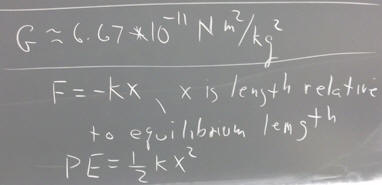 G ≈ 6.67 * 10⁻¹¹ N m²/kg²
F = -kx, x is length relative
to equilibrium length
PE = ½ k x²